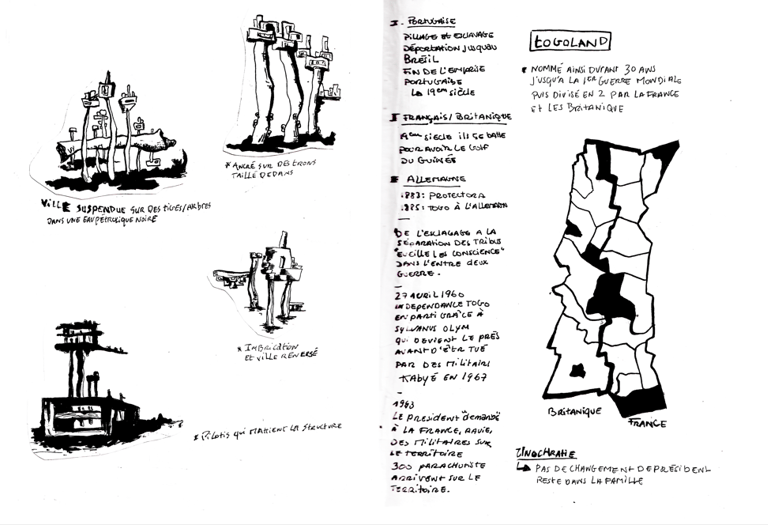 VILLE SUSPENDUE SUR DES TIGES/ARBRES
DANS UNE EAU PETROLIQUE NOIRE
* ANCRÉ SUR DE TRONS
TAILLÉ DEDANS
* IMBRICATION
ET VILLE RENVERSÉ
* PILOTIS QUI MAITIENT LA STRUCTURE
I. PORTUGAISE
PILLAGE ET ESCLAVAGE
DÉPORTATION JUSQU'AU
BRÉSIL
FIN DE L'EMPRISE
PORTUGAISE
LA 19EM SIÈCLE
I FRANÇAIS/BRITANIQUE
19EM SIECLE ILS SE BATTE
POUR AVOIR LE GOLF
DU GUINÉE
ALLEMAGNE
: PROTECTORA
: TOGO À L'ALLEMAGN
DE L'ESCLAVAGE A LA
SÉPARATION DES TRIBUS
"EVEILLE LES CONSCIENCE"
DANS L'ENTRE DEUX
GUERRE.
27 AVRIL 1960
INDEPENDANCE TOGO
EN PARTI GRÂCE À
SYLVANUS OLYM
QUI DEVIENT LE PRÉS
AVANT D'ÊTR TUÉ
PAR DES MILITAIRS
KABYÉ EN 1967
1963
LE PRESIDENT "DEMANDE"
À LA FRANCE, 
DES MILITAIRES SUR
LE TERRITOIRE
300 PARACHUISTE
ARRIVENT SUR LE
TERRITOIRE.
TOGOLAND
* NOMMÉ AINSI DURANT 30 ANS
JUSQU'À LA 1ER GUERRE MONDIALE
PUIS DIVISÉ EN 2 PAR LA FRANCE
ET LES BRITANIQUE
BRITANIQUE
FRANCE
PAS DE CHANGEMENT DE PRÉSIDENT
RESTE DANS LA FAMILLE